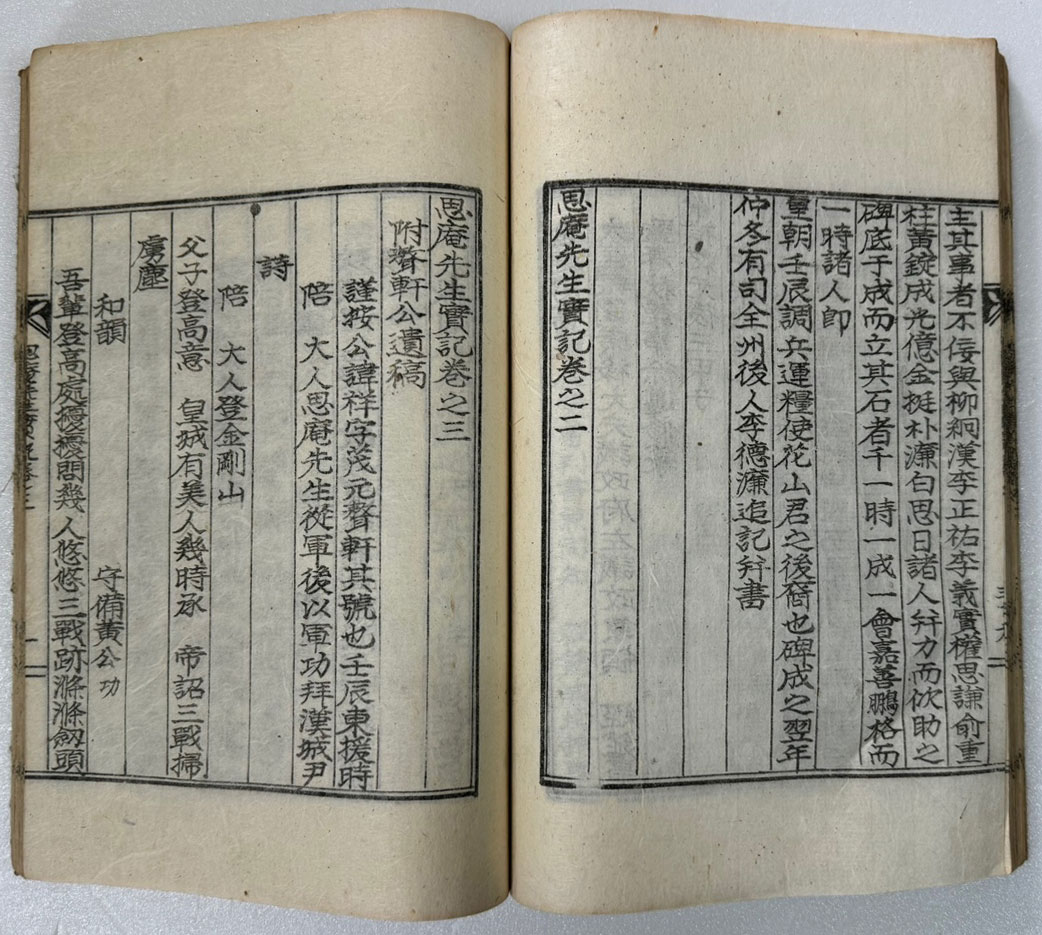 主其事者不佞與柳絅漢李正祐李義實權思謙俞重
柱黃錠成光億金挺朴濂白思日諸人幷力而佽助之
碑底于成而立其石者千一時一成一會嘉善鵬格而
一時諸人卽
皇朝壬辰調兵運糧使花山君之後裔也碑成之翌年
仲冬有司全州後人李德濂追記幷書
思庵先生實記卷之二
思庵先生實記卷之三
附聱軒公遺稿
謹按公諱祥字茂元聱軒其號也壬辰東援時
陪 大人思庵先生從軍後以軍功拜漢城尹
詩
陪 大人登金剛山
父子登高意 皇城有美人幾時承 帝詔三戰掃
虜塵
和韻 守備黃公功
吾輩登高處擾擾問幾人悠悠三戰跡滌滌劒頭